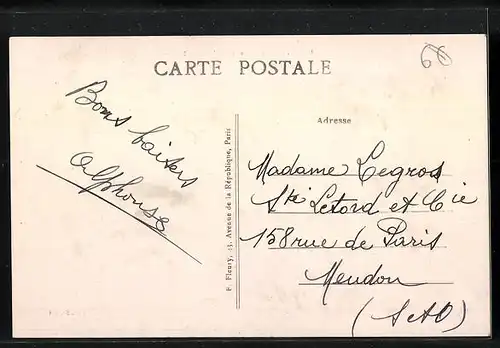 60
CARTE POSTALE
Bons baisers
Alphonse
F. Fleury, 13, Avenue de la République, Paris
Adresse
Madame Legros
Sté Letord et Cie
158 rue de Paris
Meudon
(S et O)